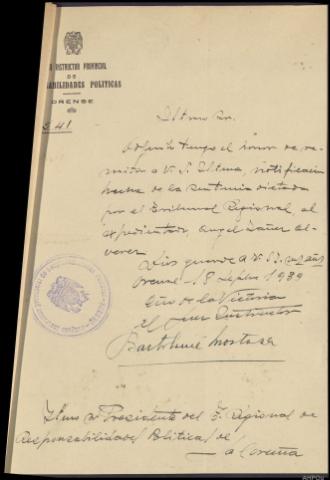 O INSTRUCTOR PROVINCIAL
DE
ABILIDADES POLITICAS
ORENSE
Iltmo Sr.
Adjunto tengo el honor de re-
mitir a V. S. Iltma, notificación
hecha de la sentencia dictada
por el Tribunal Regional, al
expedientado, Angel Yañez Al-
varez
Dios guarde a V. S.
Orense 18 Septbre 1939
Año de la Victoria
El Juez Instructor
Bartolomé Mostaza
Iltmo Sr Presidente del T. Regional de
Responsabilidades Politicas de
La Coruña